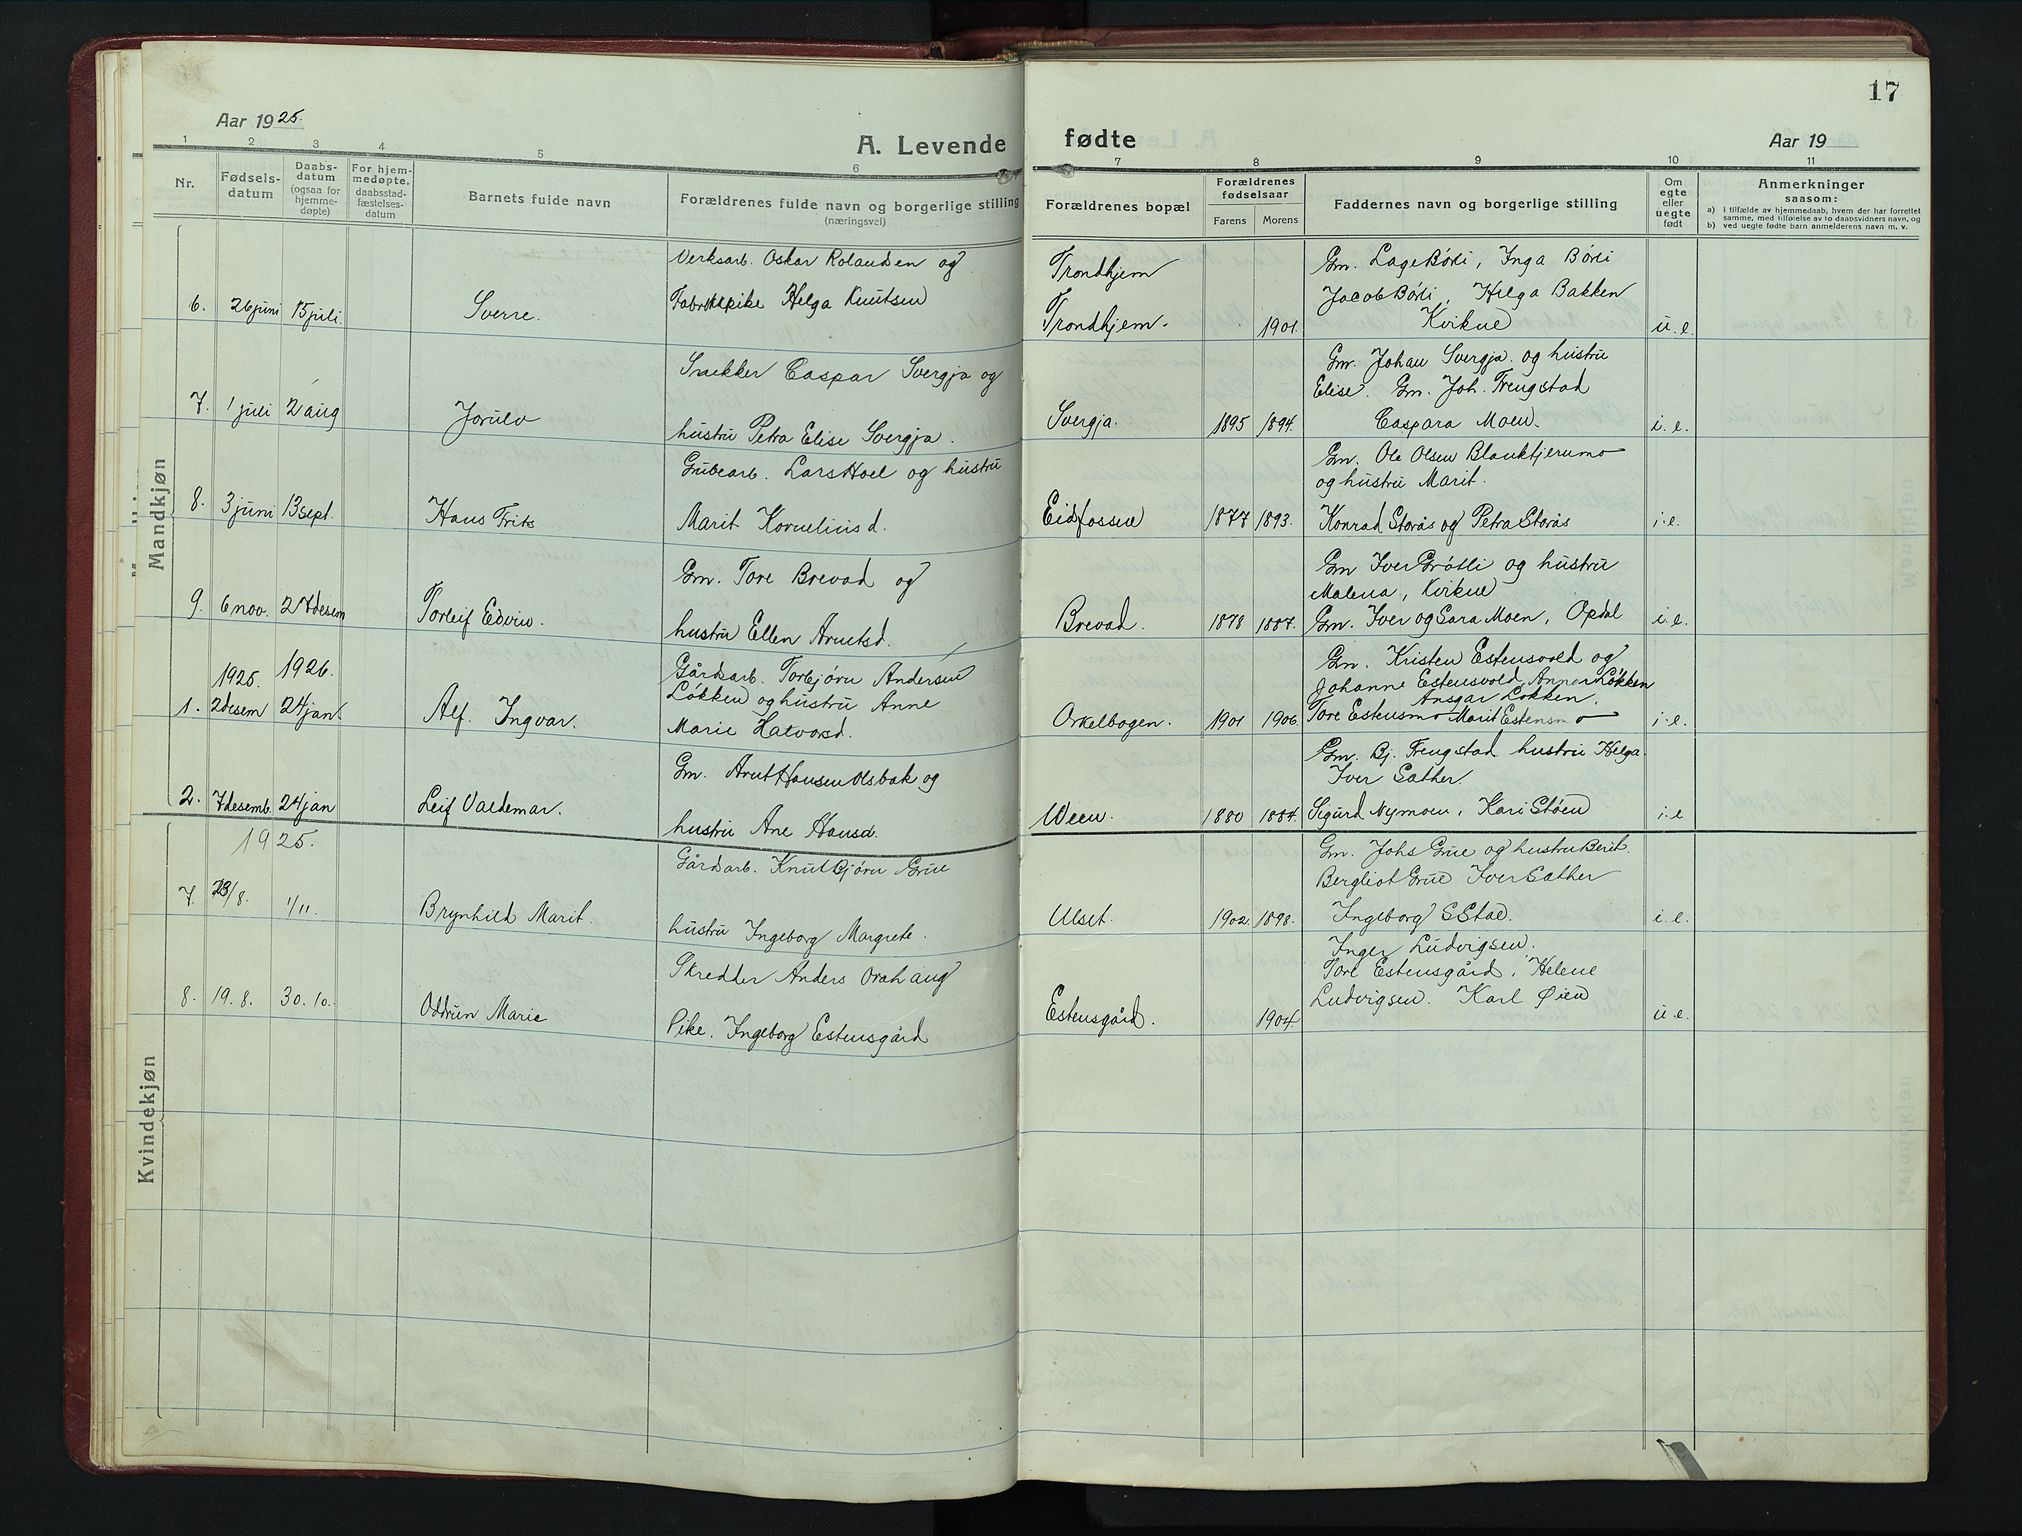 17
Aar 1925.
A. Levende
fødte
Aar 19
1 2 3 4 5 6 7 8 9 10 11
Nr.
Fødsels-
datum
Daabs-
datum
(ogsaa for
hjemme-
døpte)
For hjem-
medøpte,
daabsstad-
fæstelses-
datum
Barnets fulde navn
Forældrenes fulde navn og borgerlige stilling
(næringsvei)
Forældrenes bopæl
Forældrenes
fødselsaar
Farens Morens
Faddernes navn og borgerlige stilling
Om
egte
eller
uegte
født
Anmerkninger
saasom:
a) i tilfælde av hjemmedaab, hvem der har forrettet
samme, med tilføielse av to daabsvidners navn, og
b) ved uegte fødte barn anmelderens navn m. v.
Mandkjøn
6. 26 juni 15 juli. Sverre.
Verksarb. Oskar Rolandsen og
Fabrikkpike Helga Knutsen
Trondhjem
Trondhjem. 1901.
Gm. Lage Børli, Inga Børli
Jacob Børli, Helga Bakken
Kvikne
u. e.
7. 1 juli 2 aug Jorulv
Snekker Caspar Svergja og
hustru Petra Elise Svergja.
Svergja. 1895 1894.
Gm. Johan Svergja og hustru
Elise. Gm. Joh. Trengstad
Caspara Moen.
i. e.
8. 3 juni 13 sept. Hans Frits
Grubearb. Lars Hoel og hustru
Marit Korneliusd.
Eidsfossen 1877 1893.
Gm. Ole Olsen Blanktjernmo
og hustru Marit.
Konrad Storås og Petra Storås
i. e.
9. 6 nov. 27 desem Torleif Edvin.
Gm. Tore Brevad og
hustru Ellen Arntsd.
Brevad. 1878 1887.
Gm Iver Grøtli og hustru
Malena, Kvikne
Gm. Iver og Sara Moen, Opdal
i. e.
1925. 1926.
1. 2 desem 24 jan. Alf Ingvar.
Gårdsarb. Torbjørn Andersen
Løkken og hustru Anne
Marie Halvorsd.
Orkelbogen. 1901 1906.
Gm. Kristen Estensvold og
Johanne Estensvold, Anna Løkken
Ansgar Løkken.
Tore Estensmo Marit Estensmo
i. e.
2. 7 desemb. 24 jan Leif Valdemar.
Gm. Arnt Hansen Olsbak og
hustru Ane Hansd.
Ween. 1880 1884.
Gm. Bj. Trengstad hustru Helga.
Iver Sæther
Sigurd Nymoen, Kari Støen
i. e
Kvindekjøn
1925.
7. 23/8. 1/11. Brynhild Marit.
Gårdsarb. Knut Bjørn Grue
hustru Ingeborg Margrete.
Ulset. 1902. 1898.
Gm. Johs Grue og hustru Berit.
Bergliot Grue Iver Sæther
Ingeborg S Stad.
i. e.
8. 19. 8. 30. 10. Oddrun Marie
Skredder Anders Orahaug
Pike. Ingeborg Estensgård
Estensgård. 1904.
Inger Ludvigsen.
Tore Estensgård, Helene
Ludvigsen. Karl Øien
u. e.